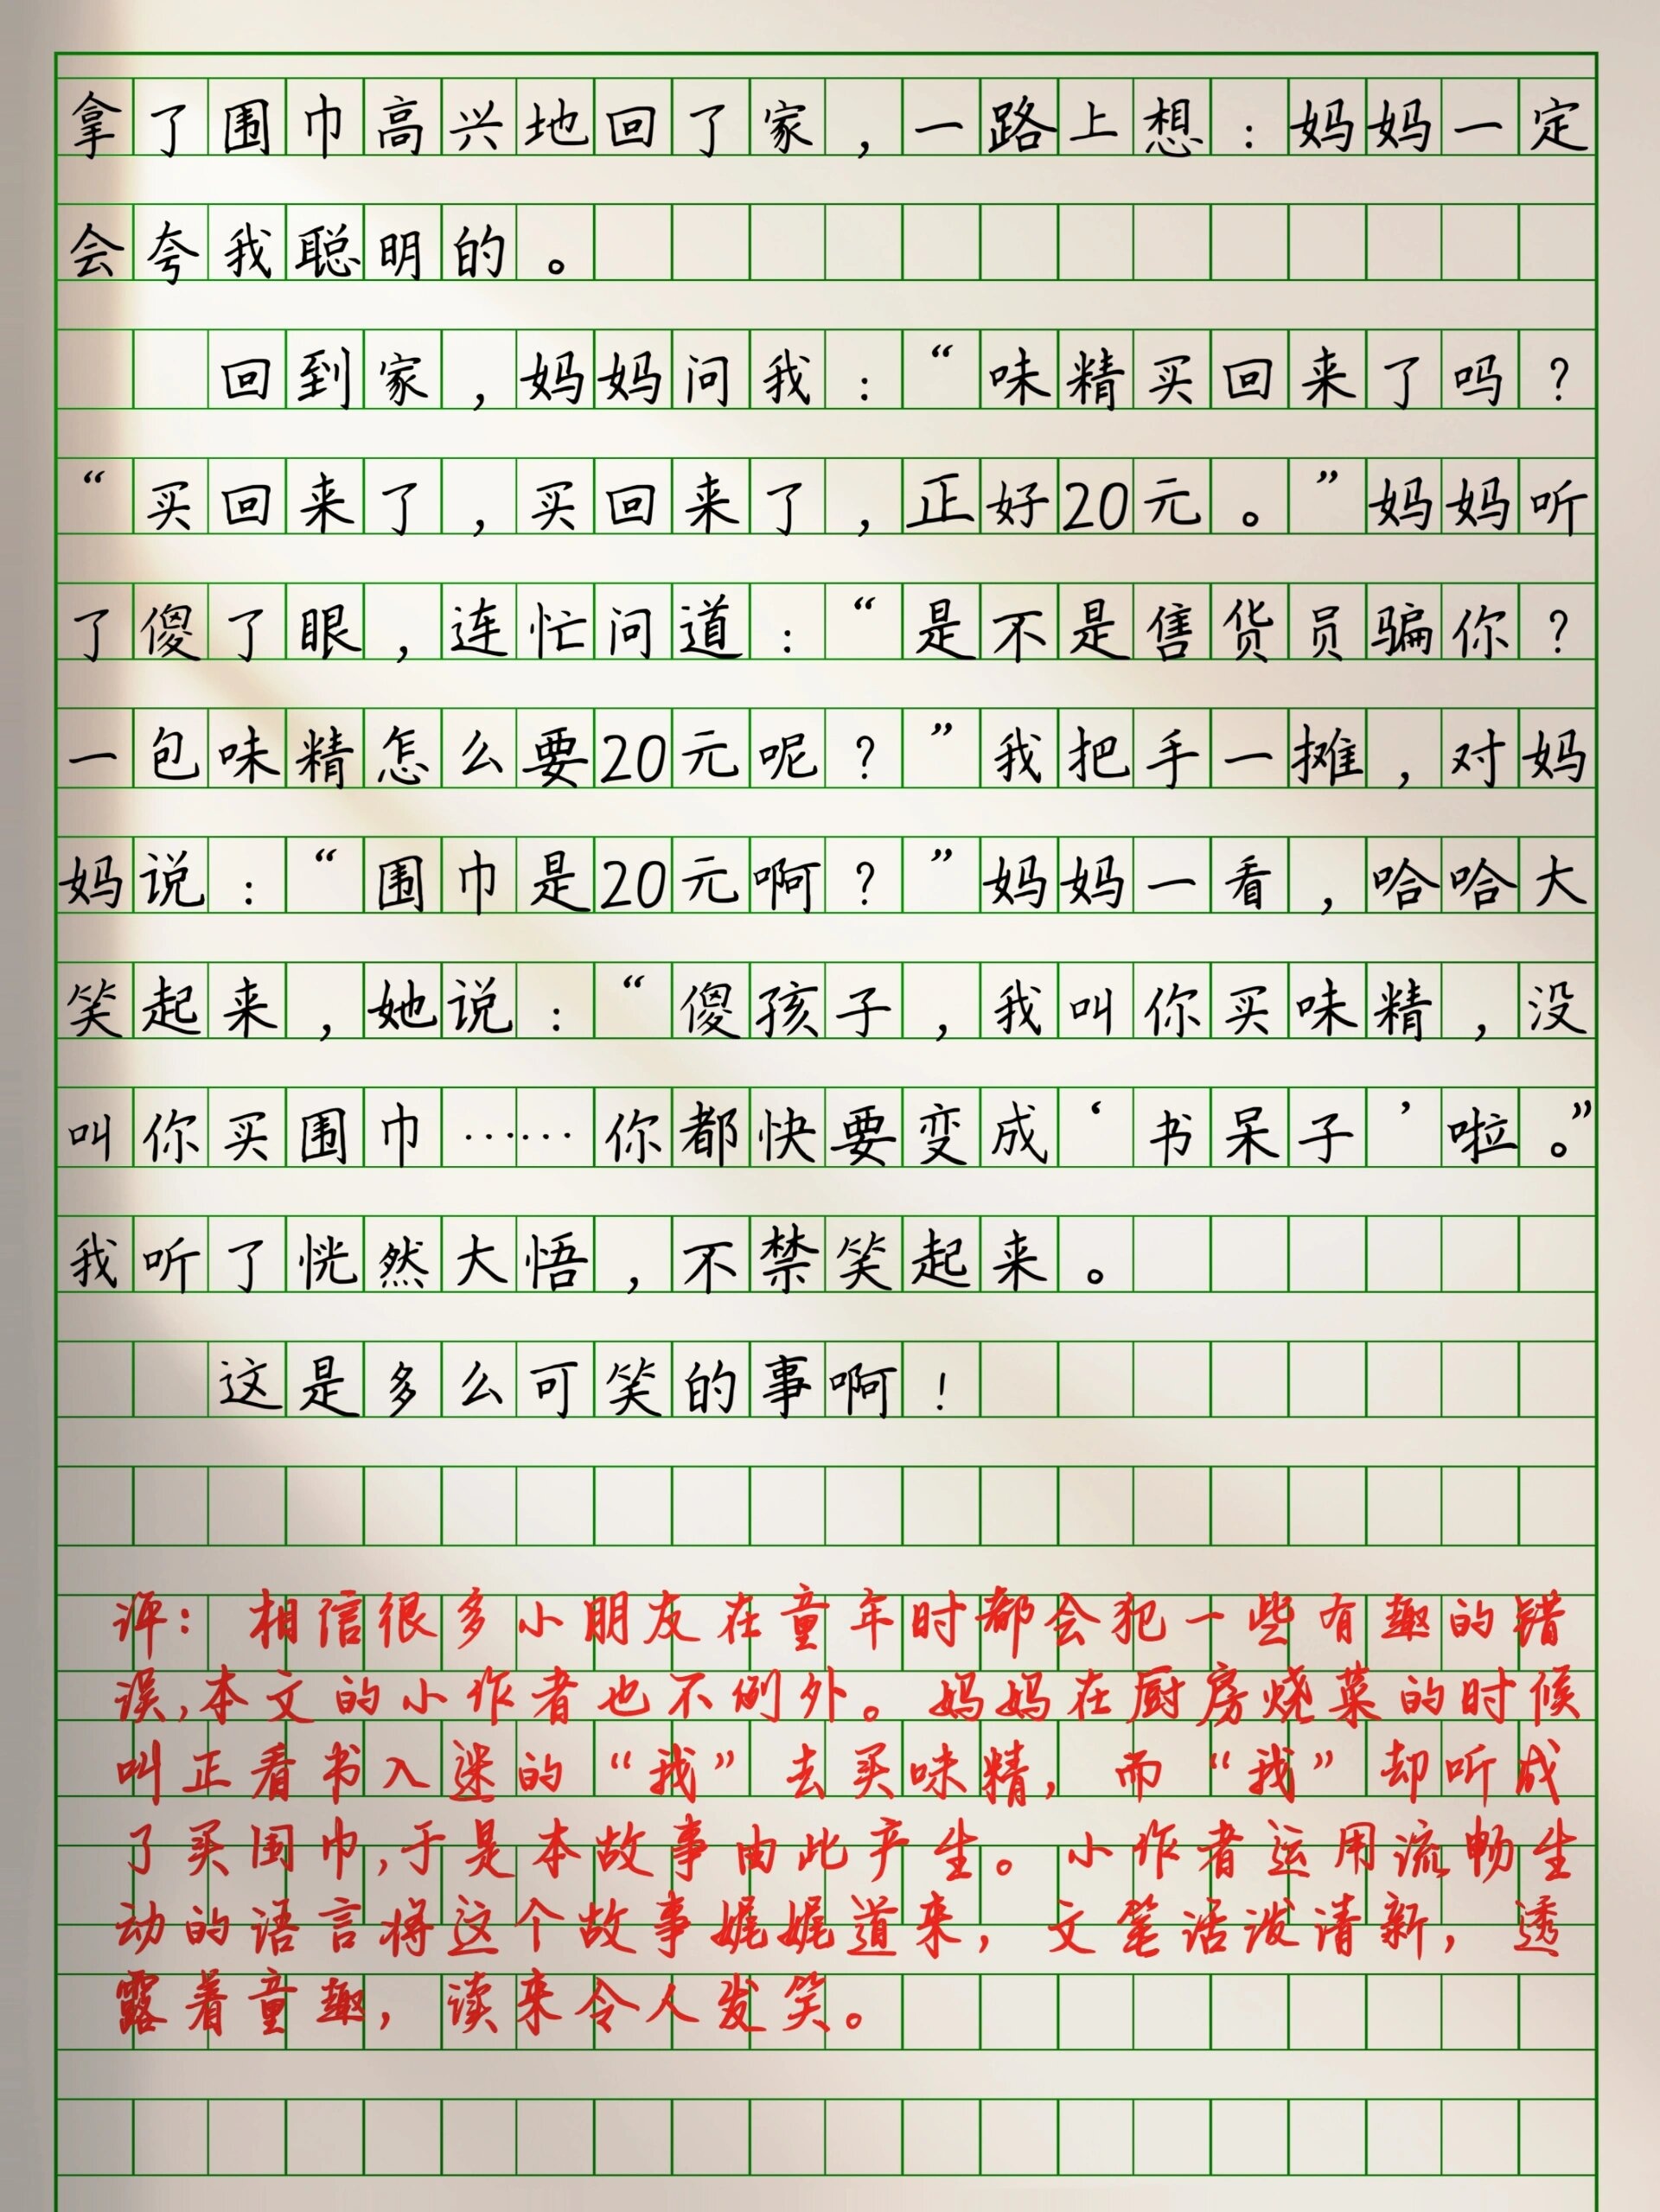 拿了围巾高兴地回了家，一路上想：妈妈一定
会夸我聪明的。
回到家，妈妈问我：“味精买回来了吗？
“买回来了，买回来了，正好20元。”妈妈听
了傻了眼，连忙问道：“是不是售货员骗你？
一包味精怎么要20元呢？”我把手一摊，对妈
妈说：“围巾是20元啊？”妈妈一看，哈哈大
笑起来，她说：“傻孩子，我叫你买味精，没
叫你买围巾……你都快要变成‘书呆子’啦。”
我听了恍然大悟，不禁笑起来。
这是多么可笑的事啊！
评：相信很多小朋友在童年时都会犯一些有趣的错
误，本文的小作者也不例外。妈妈在厨房烧菜的时候
叫正看书入迷的“我”去买味精，而“我”却听成
了买围巾，于是本故事由此产生。小作者运用流畅生
动的语言将这个故事娓娓道来，文笔活泼清新，透
露着童趣，读来令人发笑。